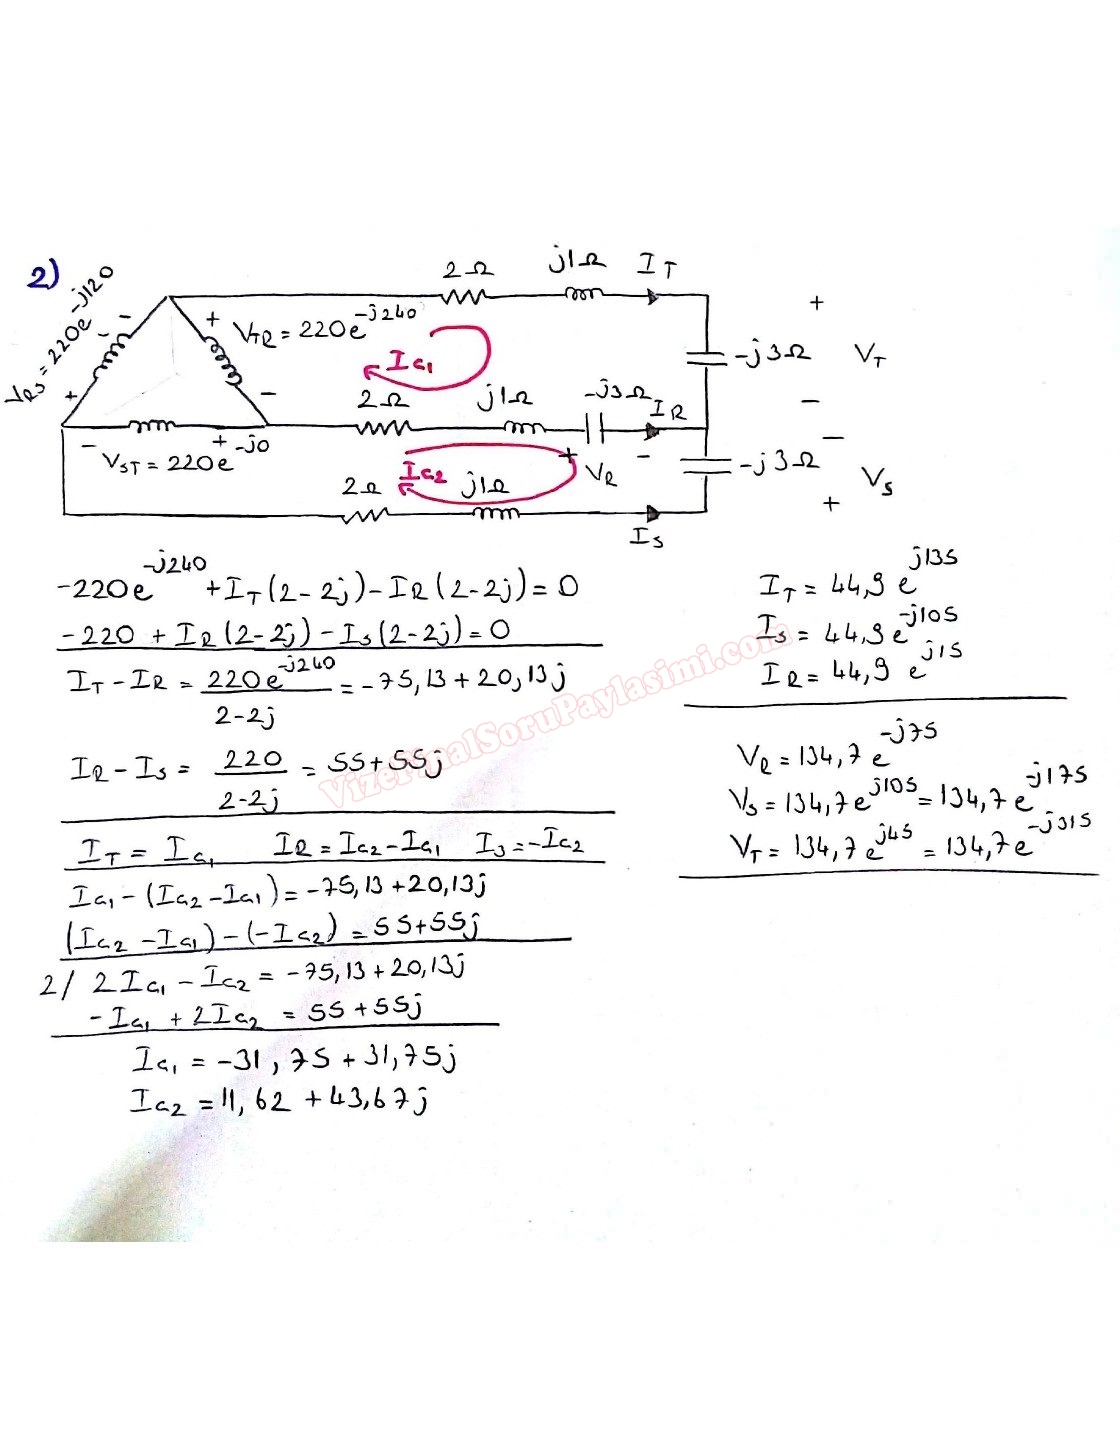 2)
V_RS = 220e^-j120
V_TR = 220e^-j240
V_ST = 220e^-j0
2Ω j1Ω I_T
-j3Ω V_T
I_Ç1
2Ω j1Ω -j3Ω I_R
V_R
-j3Ω V_S
I_Ç2
2Ω j1Ω
I_S
+ - + - - + + - + - - +
-220e^-j240 + I_T(2-2j) - I_R(2-2j) = 0
-220 + I_R(2-2j) - I_S(2-2j) = 0
I_T - I_R = 220e^-j240 / 2-2j = -75,13 + 20,13j
I_R - I_S = 220 / 2-2j = 55 + 55j
I_T = I_Ç1 I_R = I_Ç2 - I_Ç1 I_S = -I_Ç2
I_Ç1 - (I_Ç2 - I_Ç1) = -75,13 + 20,13j
(I_Ç2 - I_Ç1) - (-I_Ç2) = 55 + 55j
2/ 2I_Ç1 - I_Ç2 = -75,13 + 20,13j
-I_Ç1 + 2I_Ç2 = 55 + 55j
I_Ç1 = -31,75 + 31,75j
I_Ç2 = 11,62 + 43,67j
I_T = 44,9 e^j135
I_S = 44,9 e^-j105
I_R = 44,9 e^j15
V_R = 134,7 e^-j75
V_S = 134,7 e^j105 = 134,7 e^-j175
V_T = 134,7 e^j45 = 134,7 e^-j315
VizeFinalSoruPaylasimi.com